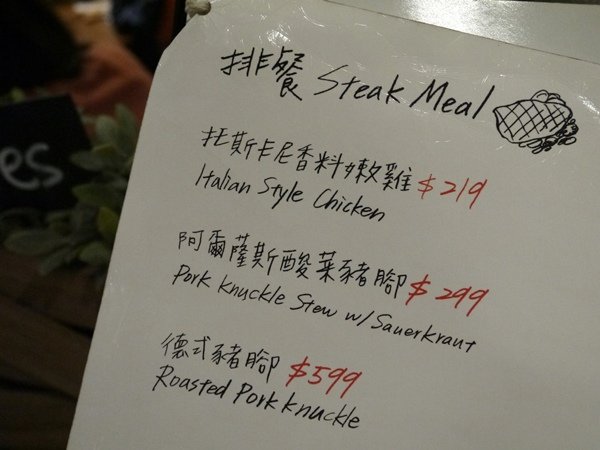 排餐 Steak Meal
托斯卡尼香料嫩雞 $219
Italian Style Chicken
阿爾薩斯酸菜豬腳 $299
Pork Knuckle Stew w/ Sauerkraut
德式豬腳 $599
Roasted Pork Knuckle
es